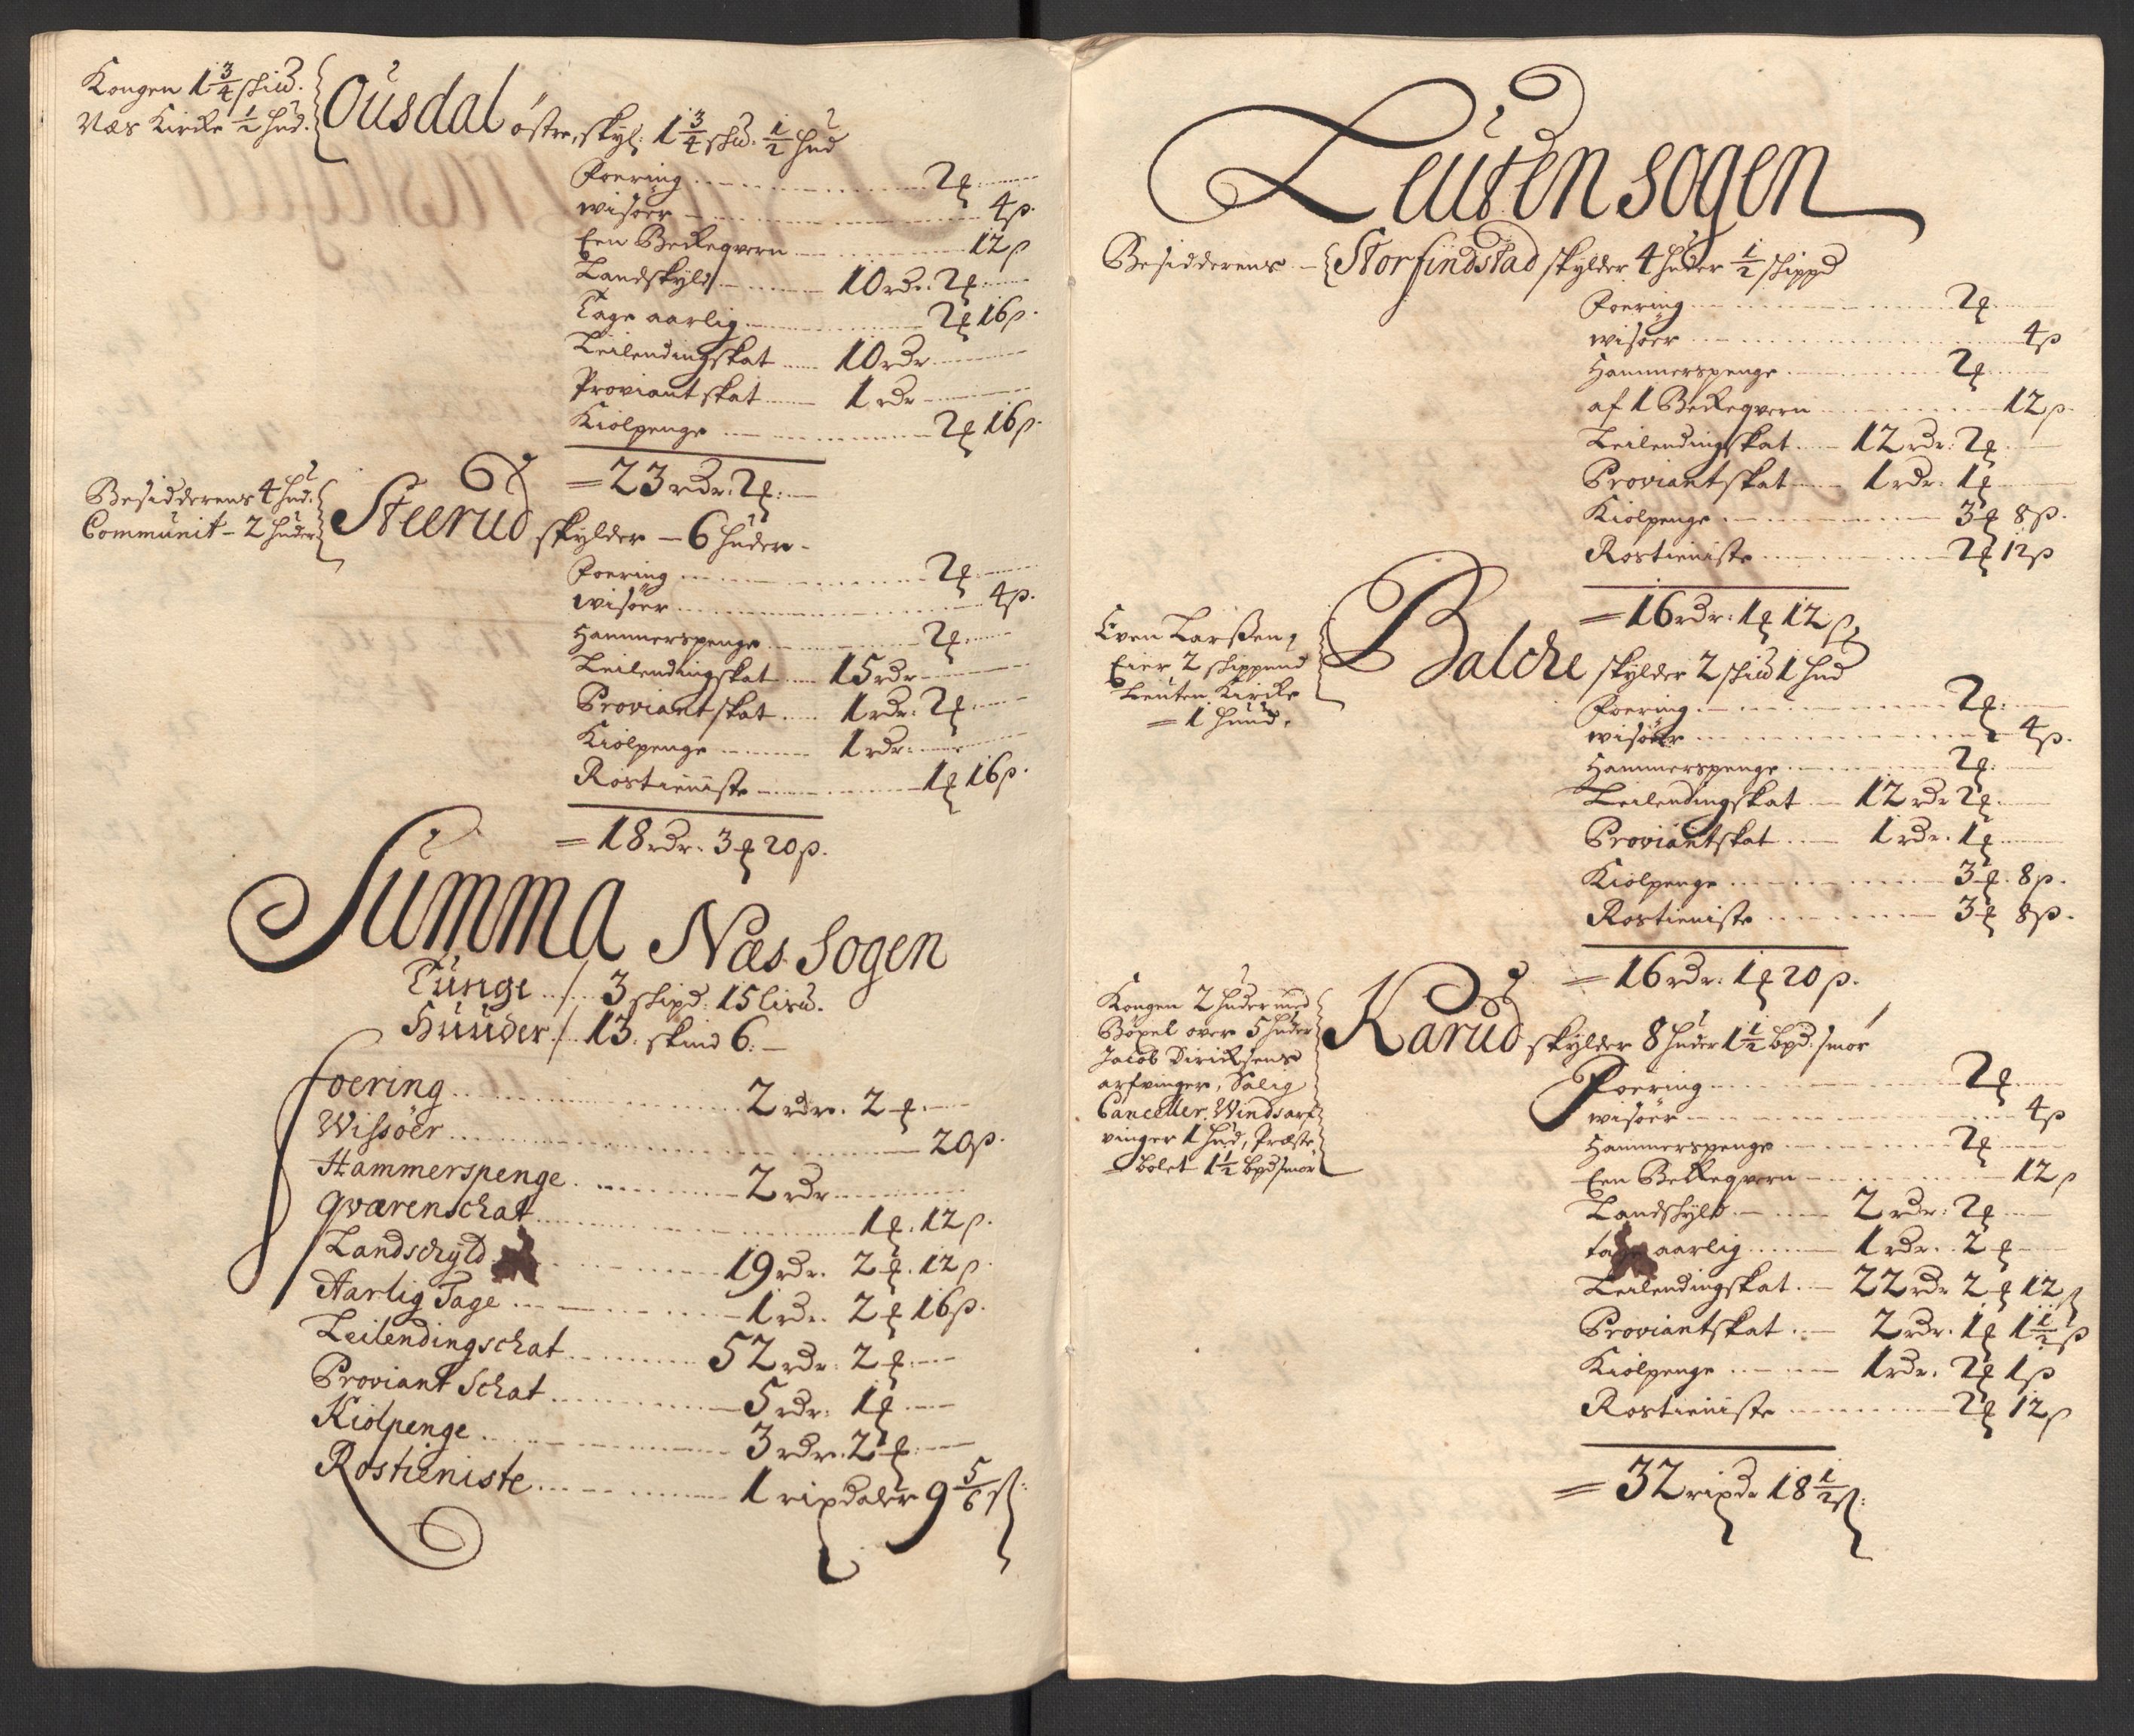 Kongen 1 3/4 skiu.
Næs Kircke 1/2 hud.
Ousdal östre, skyl: 1 3/4 skiu. 1/2 hud
Foering 2 ℔
wisöer 4 β.
Een Beckeqvern 12 β
Landskyld 10 rdr. 2 ℔
Tage aarlig 2 ℔ 16 β.
Leilendingskat 10 rdr
Proviantskat 1 rdr
Kiölpenge 2 ℔ 16 β.
= 23 rdr. 2 ℔:
Besidderens 4 hud.
Communit - 2 huder
Steerud skylder - 6 huder -
Foering 2 ℔
wisöer 4 β.
Hammerspenge 2 ℔
Leilendingskat 15 rdr
Proviantskat 1 rdr. 2 ℔
Kiölpenge 1 rdr:
Rostieniste 1 ℔ 16 β.
= 18 rdr. 3 ℔ 20 β.
Summa Næs Sogen
Tunge ./. 3 skipd. 15 lisu.
Huuder /. 13. skind 6.
foering 2 rdr. 2 ℔
Wissöer 20 β.
Hammerspenge 2 rdr
Qværenschat 1 ℔. 12 β.
Landschyld 19 rdr. 2 ℔. 12 β.
Aarlig Tage 1 rdr. 2 ℔ 16 β.
Leilendingschat 52 rdr. 2 ℔
Proviant Schat 5 rdr. 1 ℔
Kiölpenge 3 rdr. 2 ℔
Rostieniste 1 rixdaler 9 5/6 β:
Leuten sogen
Besidderens - Storfindstad skylder 4 huder 1/2 skippd
Foering 2 ℔
wisöer 4 β
Hammerspenge 2 ℔
af 1 Beckeqvern 12 β.
Leilendingskat 12 rdr. 2 ℔
Proviantskat 1 rdr. 1 ℔
Kiölpenge 3 ℔ 8 β.
Rostieniste 2 ℔ 12 β
= 16 rdr: 1 ℔ 12 β
Even Larsen,
Eier 2 skippund
Leuten Kircke
= 1 huud.
Balche skylder 2 skiu 1 hud
Foering 2 ℔
wisöer 4 β.
Hammerspenge 2 ℔
Leilendingskat 12 rdr 2 ℔
Proviantskat 1 rdr. 1 ℔
Kiölpenge 3 ℔. 8 β.
Rostieniste 3 ℔ 8 β.
= 16 rdr. 1 ℔ 20 β.
Kongen 2 huder med
Böxel over 5 huder
Jacob Dirichsens
arfvinger, Salig
Canceller Windsarf
vinger 1 hud, Præste
= bolet 1 1/2 bpd smör
Karud skylder 8 huder 1 1/2 bpd. smör
Foering 2 ℔
wisöer 4 β
Hammerspenge 2 ℔
Een Beckeqvern 12 β
Landskyld 2 rdr: 2 ℔
tage aarlig 1 rdr. 2 ℔
Leilendingskat 22 rdr 2 ℔ 12 β
Proviantskat 2 rdr. 1 ℔ 1 1/2 β
Kiölpenge 1 rdr. 2 ℔ 1 β
Rostieniste 2 ℔ 12 β
= 32 rixdr 18 1/2 β: